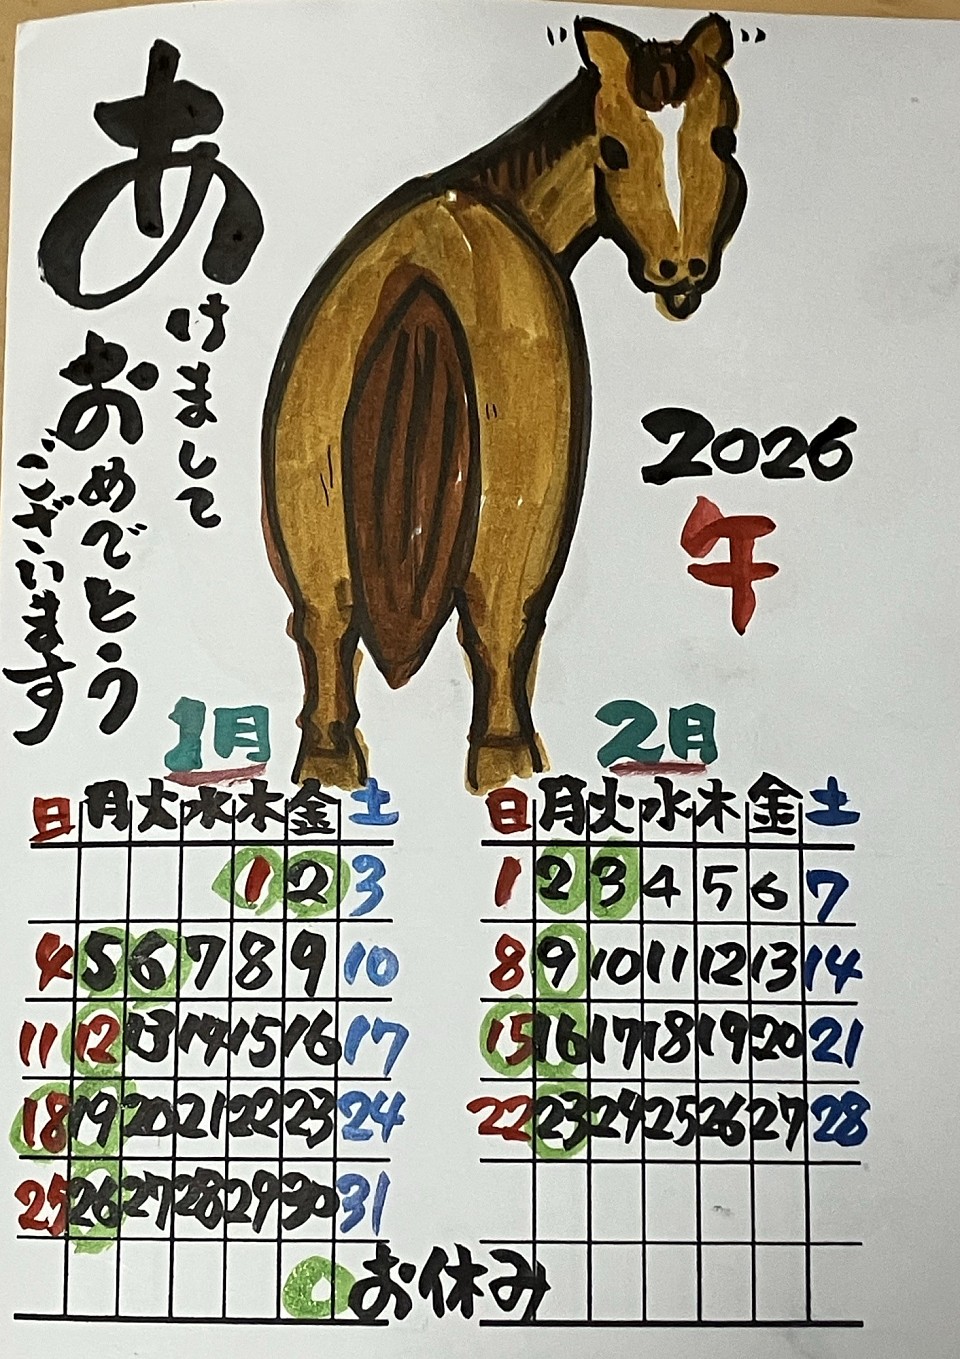 あけまして
おめでとう
ございます
2026
午
1月
日 月 火 水 木 金 土
1 2 3
4 5 6 7 8 9 10
11 12 13 14 15 16 17
18 19 20 21 22 23 24
25 26 27 28 29 30 31
2月
日 月 火 水 木 金 土
1 2 3 4 5 6 7
8 9 10 11 12 13 14
15 16 17 18 19 20 21
22 23 24 25 26 27 28
お休み